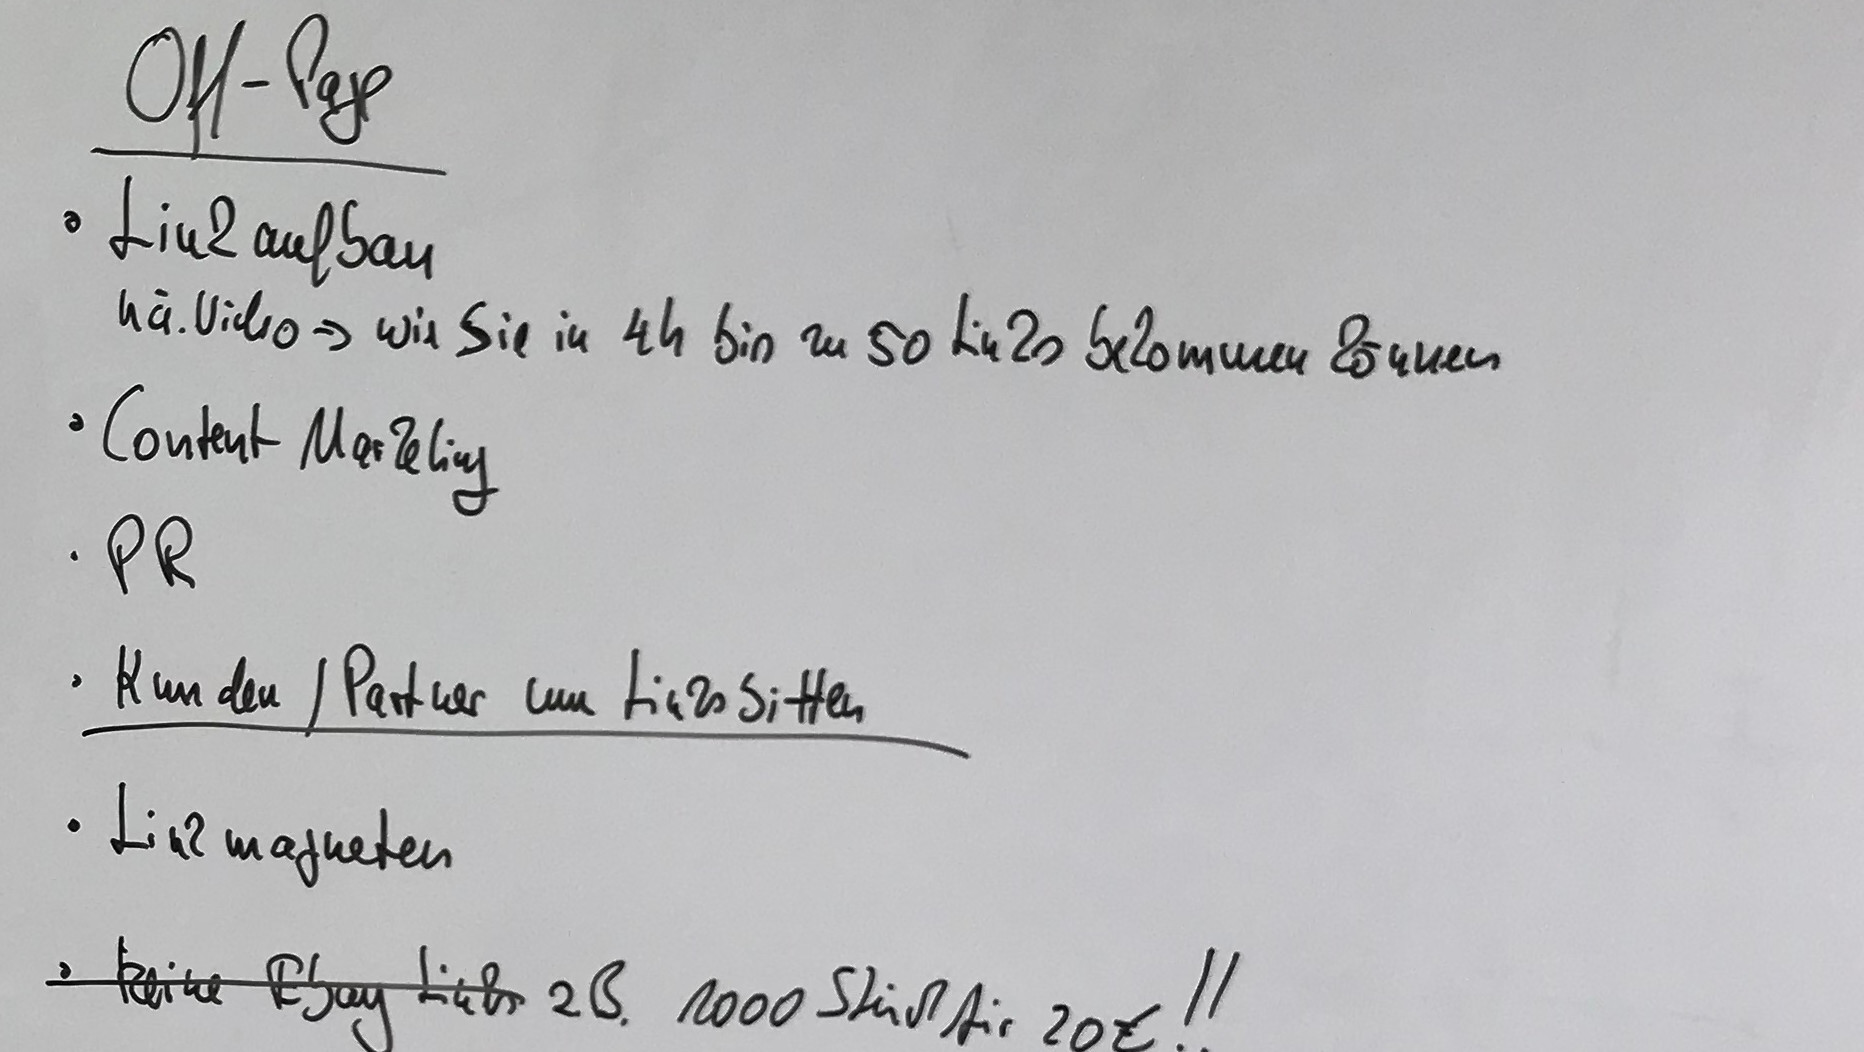 Off-Page
• Linkaufbau
nä. Video => wie Sie in 4h bis zu 50 Links bekommen können
• Content Marketing
• PR
• Kunden / Partner um Links bitten
• Linkmagneten
• keine Ebay Links zB. 1000 Stück für 20€!!